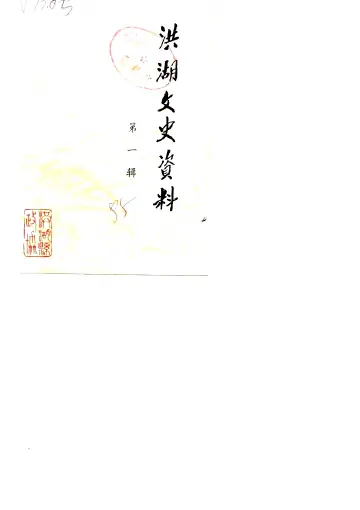 洪湖文史資料
第一辑
85